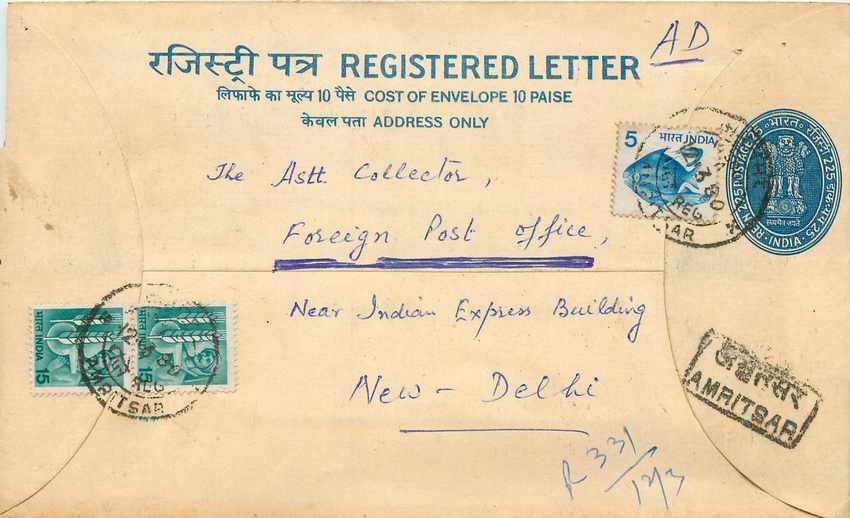 AD
रजिस्ट्री पत्र REGISTERED LETTER
लिफाफे का मूल्य 10 पैसे COST OF ENVELOPE 10 PAISE
केवल पता ADDRESS ONLY
5 भारत INDIA
REG
SAR
भारत
POSTAGE 25
सत्यमेव जयते
INDIA
The Astt. Collector,
Foreign Post Office,
Near Indian Express Building
New - Delhi
15 भारत INDIA
15 भारत INDIA
12 3 80
REG
AMRITSAR
अमृतसर
AMRITSAR
R 331
12/3